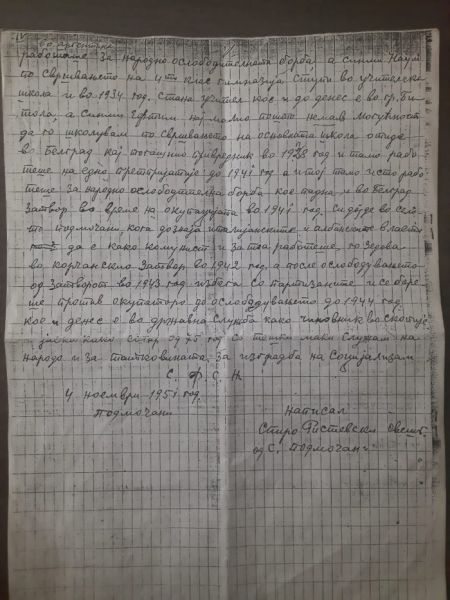 во Аргентина
работеше за народно ослободителната борба а синми Наум
по свршването на 4ти клас гимназија стапи во учителска
школа и во 1934 год. стана учител кое и до денес е во гр. Би
тола, а синми најмлио пошто немав могуќност
да го школувам по свршването на основната школа отиде
во Белград кај погашнио привредник во 1928 год и тамо рабо
теше на едно претпријатије до 1941 год а и тој тамо исто рабо
теше за народно ослободителна борба кое падна и во Белград
затвор во време на окупацијата во 1941 год. си дојде во село
то подмочани, кога дознаја италијанските и албанските власти
да е како комунист и за тоа работеше, го зедова
во корчанскио затвор во 1942 год, а после ослободувањето
од затворот во 1943 год. избега со партизаните и се боре
ше против окупаторо до ослободувањето до 1944 год
кое и денес е во државна служба како чиновник во Скопје
како стар од 75 год со мави служам на
народо и за татковината за изградба на Социјализам
С. Ф. С. Н.
4 ноември 1951 год.
Подмочани
Написал
Стиро Ристевски
од С. Подмочани